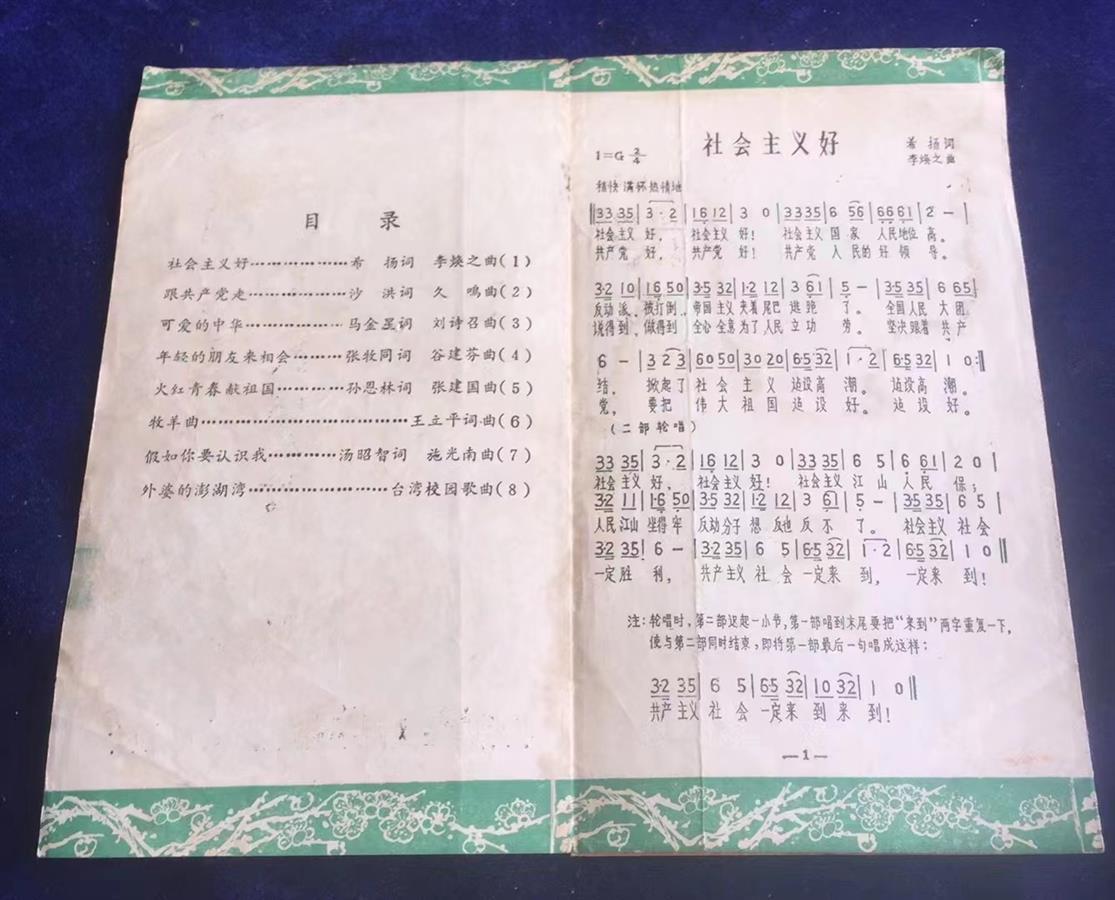 目 录
社会主义好………………希 扬词 李焕之曲(1)
跟共产党走………………沙 洪词 久 鸣曲(2)
可爱的中华………………马金星词 刘诗召曲(3)
年轻的朋友来相会………张牧同词 谷建芬曲(4)
火红青春献祖国…………孙恩林词 张建国曲(5)
牧羊曲……………………………王立平词曲(6)
假如你要认识我…………汤昭智词 施光南曲(7)
外婆的澎湖湾………………………台湾校园歌曲(8)
社会主义好
1=G 2/4
希 扬词
李焕之曲
稍快 满怀热情地
‖33 35|3·2|16 12|3 0|33 35|6 56|66 61|2 -|
社会主义 好, 社会主义 好! 社会主义 国 家 人民地位 高。
共产党 好, 共产党 好! 共产党 人 民的 好 领 导。
3·2 10|16 50|3·5 32|1·2 12|3 61|5 -|3·5 35|6 65|
反动派,被打倒,帝国主义 夹着尾巴 逃 跑 了。 全国人民 大 团
说得到,做得到 全心全意 为了人民 立 功 劳。 坚决跟着 共 产
6 -|3 23|60 50|30 20|6·5 32|1·2|6·5 32|1 0:‖
结, 掀起了 社 会 主 义 建设高 潮。 建设高 潮。
党, 要 把 伟 大 祖 国 建 设 好。 建 设 好。
(二部轮唱)
33 35|3·2|16 12|3 0|33 35|6 5|6 61|2 0|
社会主义 好, 社会主义 好! 社会主义 江 山 人 民 保;
3·2 11|1·6 50|3·5 32|1·2 12|3 61|5 -|3·5 35|6 5|
人民江山 坐得牢 反动分子 想 反也 反 不 了。 社会主义 社 会
3·2 35|6 -|3·2 35|6 5|6·5 32|1·2|6·5 32|1 0‖
一定胜 利, 共产主义 社 会 一定来 到, 一定来 到!
注:轮唱时,第二部迟起一小节,第一部唱到末尾要把“来到”两字重复一下,
使与第二部同时结束,即将第一部最后一句唱成这样:
3·2 35|6 5|6·5 32|10 32|1 0‖
共产主义 社 会 一定来 到 来 到!
—1—